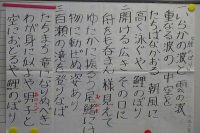 いらかの波と雲の波
重なる波の中空を
たちばなかおる朝風に
高く泳ぐや鯉のぼり
二 開ける広き其の口に
舟をも呑まん様見えて
ゆたかに振るう尾鰭には
物に動ぜぬ姿あり
三 百瀬の滝を登りなば
たちまち竜になりぬべき
わが身に似よや男子と
空におどるや鯉のぼり